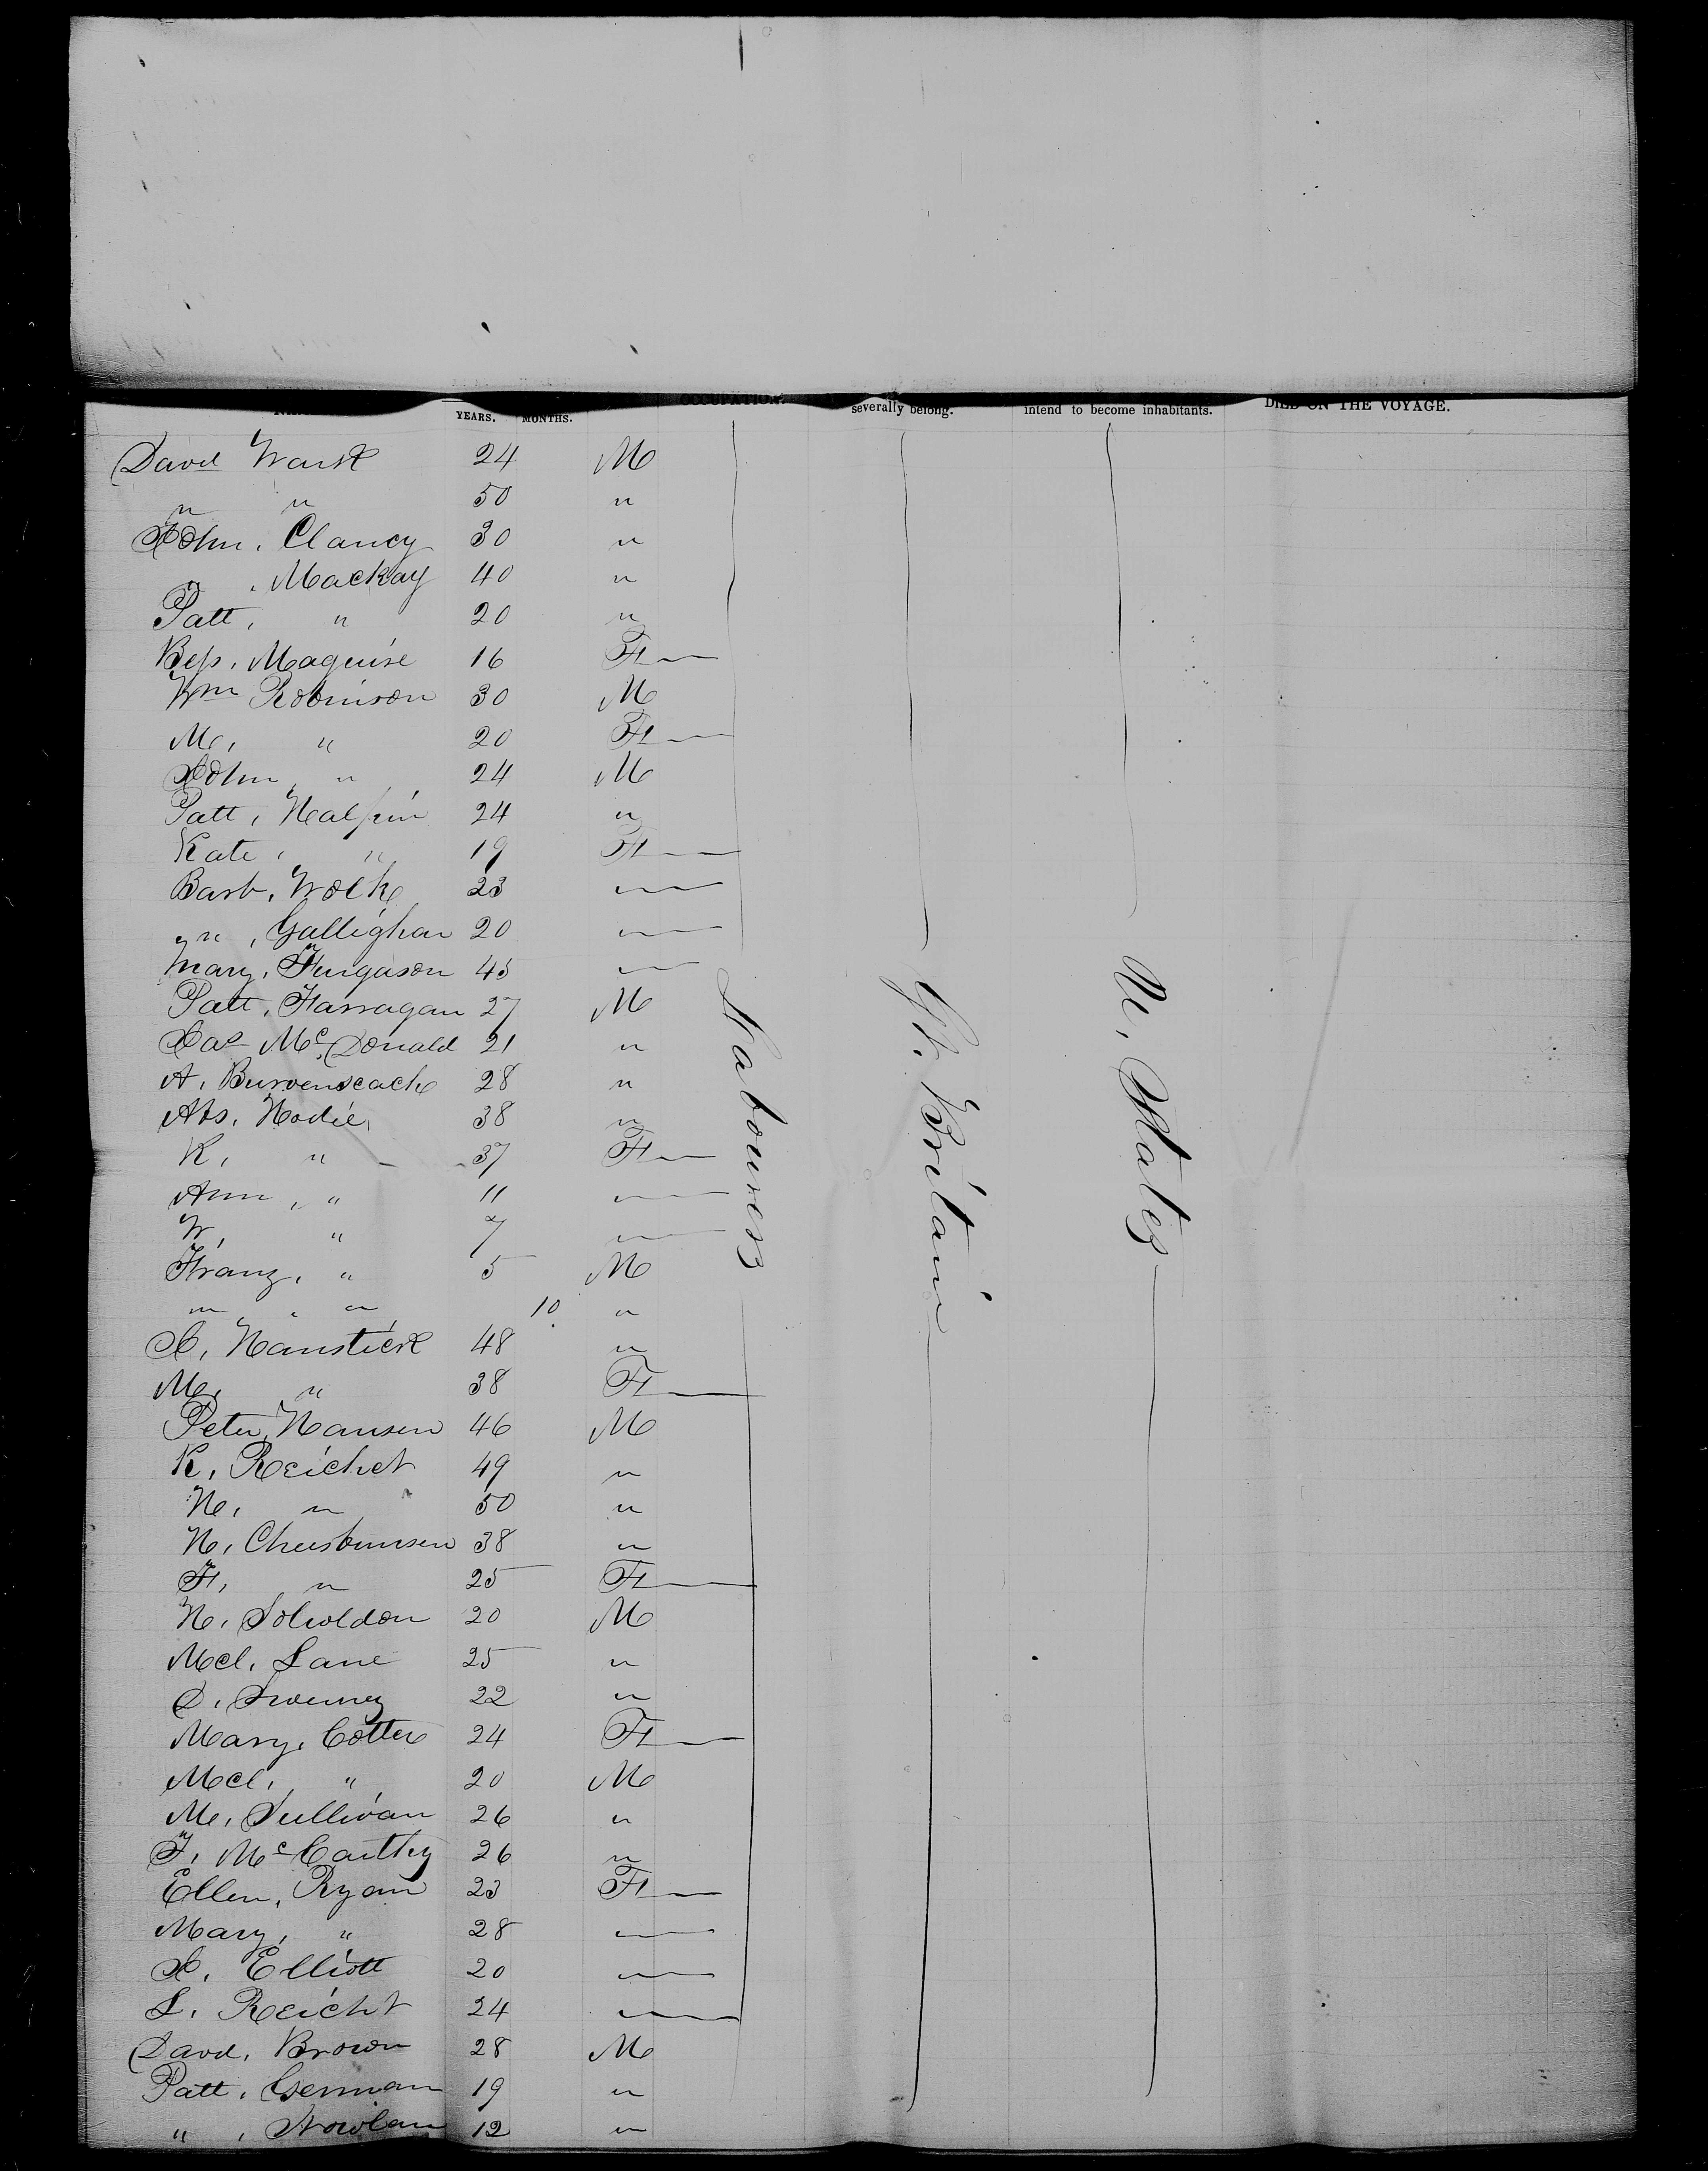 YEARS. MONTHS. OCCUPATION. severally belong. intend to become inhabitants. DIED ON THE VOYAGE.
David 24 M
" " 50 "
John, Clancy 30 "
" , Mackay 40 "
Patt, " 20 "
Bess, Maguire 16 F
Wm Robinson 30 M
M, " 20 F
John, " 24 M
Patt, Halpin 24 "
Kate, " 19 F
Barb, 23 "
" , Gallighan 20 "
Mary, Furgason 45 "
Patt, Farragan 27 M
Jas McDonald 21 "
A, 28 "
Abs, Hodie 38 "
K, " 37 F
Ann, " 11 "
W, " 7 "
Franz, " 5 M
" , " 10 "
J, 48 "
M, " 38 F
Peter, Hansen 46 M
K, Reichet 49 "
H, " 50 "
H, 38 "
F, " 25 F
H, 20 M
Mcl, Lane 25 "
D, Sweeney 22 "
Mary, Cotter 24 F
Mcl, " 20 M
M, Sullivan 26 "
F, McCarthy 26 "
Ellen, Ryan 23 F
Mary, " 28 "
J, Elliott 20 "
L, Reicht 24 "
Davd, Brown 28 M
Patt, German 19 "
" , Nowlan 12 "
Labourers
Gt. Britain
U. States